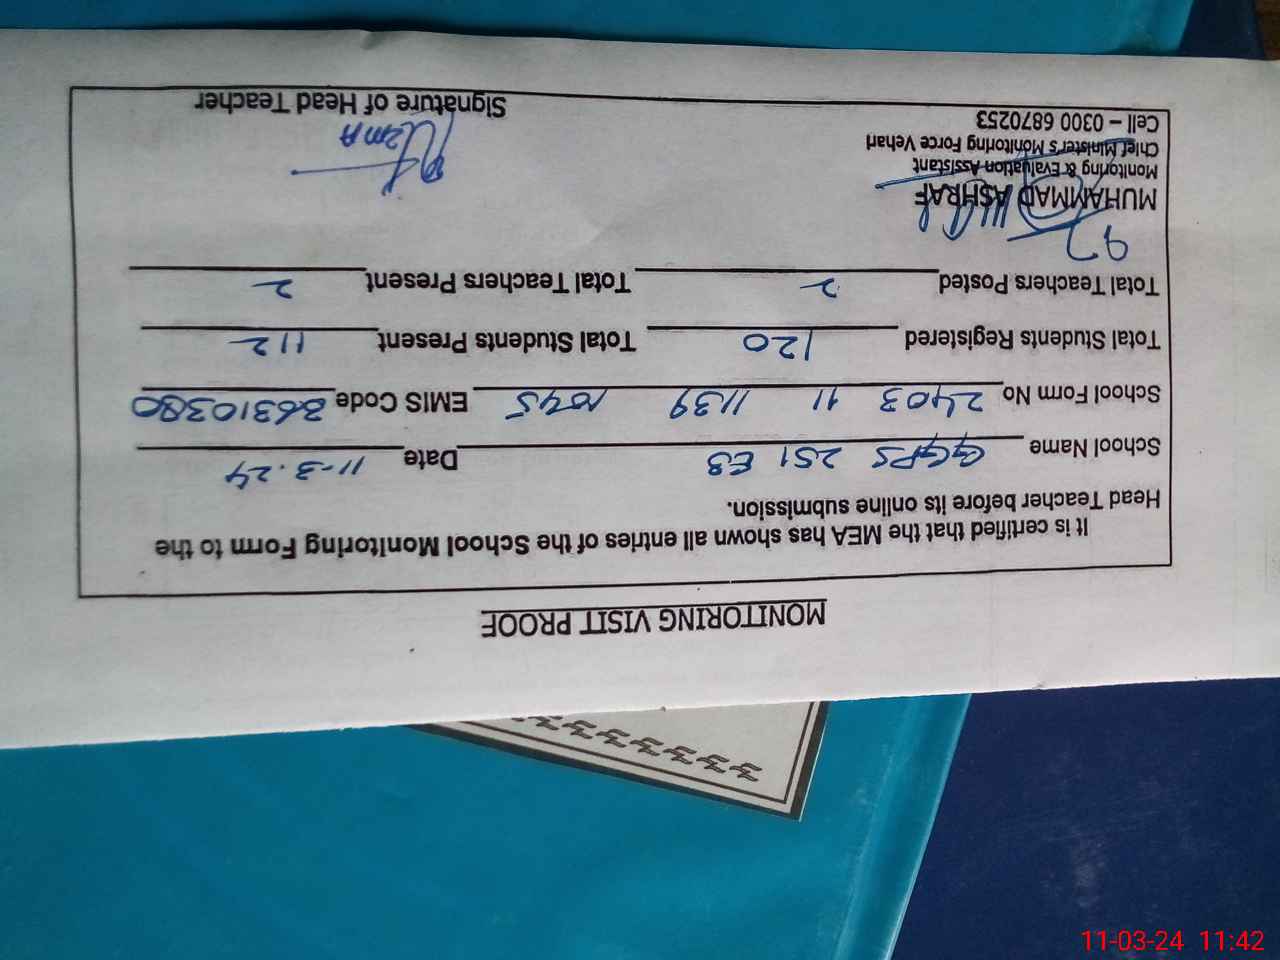 MONITORING VISIT PROOF
It is certified that the MEA has shown all entries of the School Monitoring Form to the
Head Teacher before its online submission.
School Name GGPS 251 EB Date 11-3.24
School Form No 2403 11 1139 1045 EMIS Code 36310380
Total Students Registered 120 Total Students Present 112
Total Teachers Posted 2 Total Teachers Present 2
97
MUHAMMAD ASHRAF
Monitoring & Evaluation Assistant
Chief Minister's Monitoring Force Vehari
Cell – 0300 6870253
UzmA
Signature of Head Teacher
11-03-24 11:42